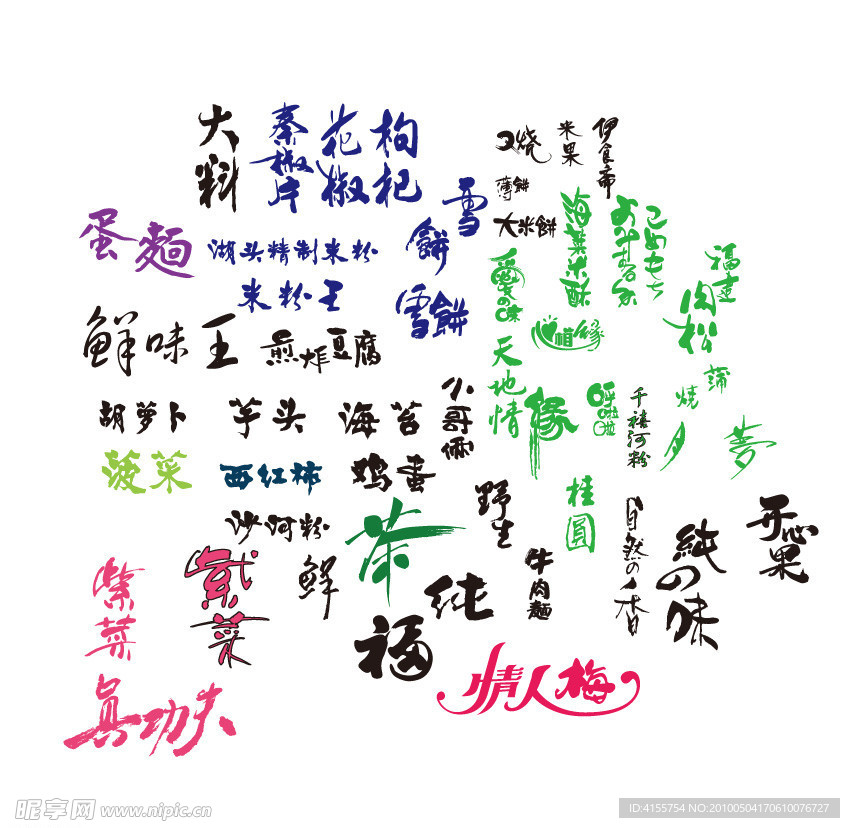 大料
秦椒片
花椒
枸杞
又烧
米果
伊食斋
薄餅
大米餅
雪
餅
蛋麵
湖头精制米粉
米粉王
雪餅
海菜米酥
こめもち
福建
肉松
愛の味
惜缘
鲜味王
煎炸豆腐
天地情
緣
千禧河粉
燒
蒲
夕
夢
小哥俩
胡萝卜
芋头
海苔
菠菜
西红柿
鸡蛋
沙河粉
茶
野生
桂圓
自然の香
純の味
开心果
紫菜
紫菜
鲜
纯
牛肉麵
福
情人梅
真功夫
昵享网 www.nipic.cn
ID:4155754 NO:20100504170610076727